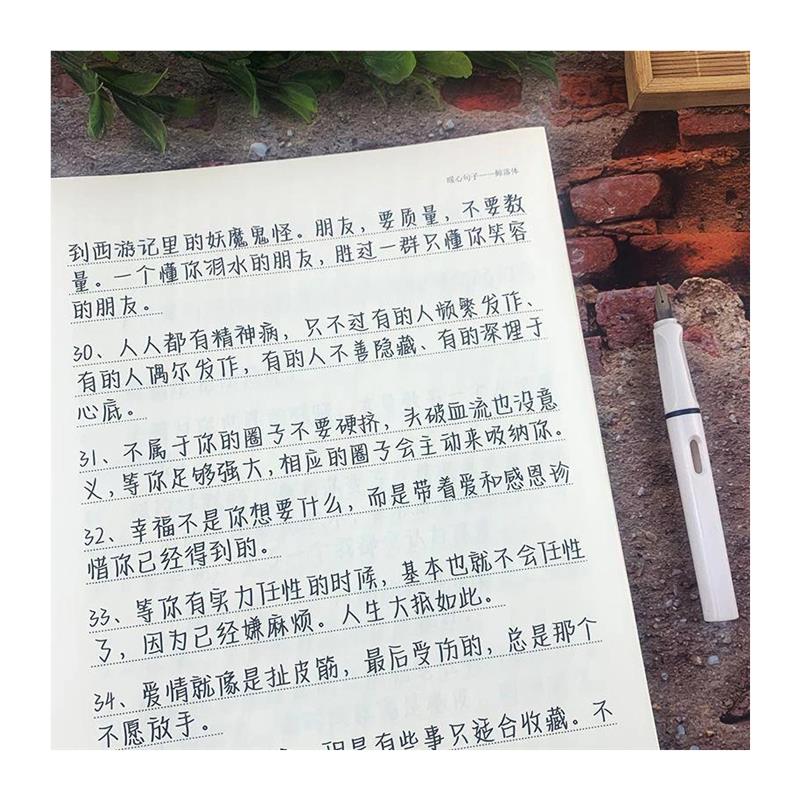 暖心句子——鲸落体
到西游记里的妖魔鬼怪。朋友，要质量，不要数
量。一个懂你泪水的朋友，胜过一群只懂你笑容
的朋友。
30、人人都有精神病，只不过有的人频繁发作、
有的人偶尔发作，有的人不善隐藏、有的深埋于
心底。
31、不属于你的圈子不要硬挤，头破血流也没意
义，等你足够强大，相应的圈子会主动来吸纳你。
32、幸福不是你想要什么，而是带着爱和感恩珍
惜你已经得到的。
33、等你有实力任性的时候，基本也就不会任性
了，因为已经嫌麻烦。人生大抵如此。
34、爱情就像是扯皮筋，最后受伤的，总是那个
不愿放手。
，但是有些事只适合收藏。不